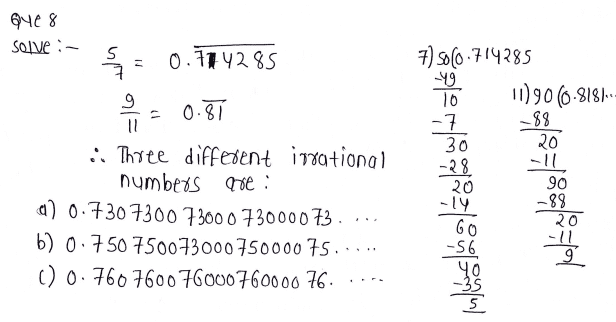 Que 8
Solve :-
5/7 = 0.714285
9/11 = 0.81
∴ Three different irrational
numbers are :
a) 0.7307300730007300073.....
b) 0.750750073000750000 75.....
c) 0.760760076000760000 76......
7)50(0.714285
-49
10
-7
30
-28
20
-14
60
-56
40
-35
5
11)90(0.8181..
-88
20
-11
90
-88
20
-11
9